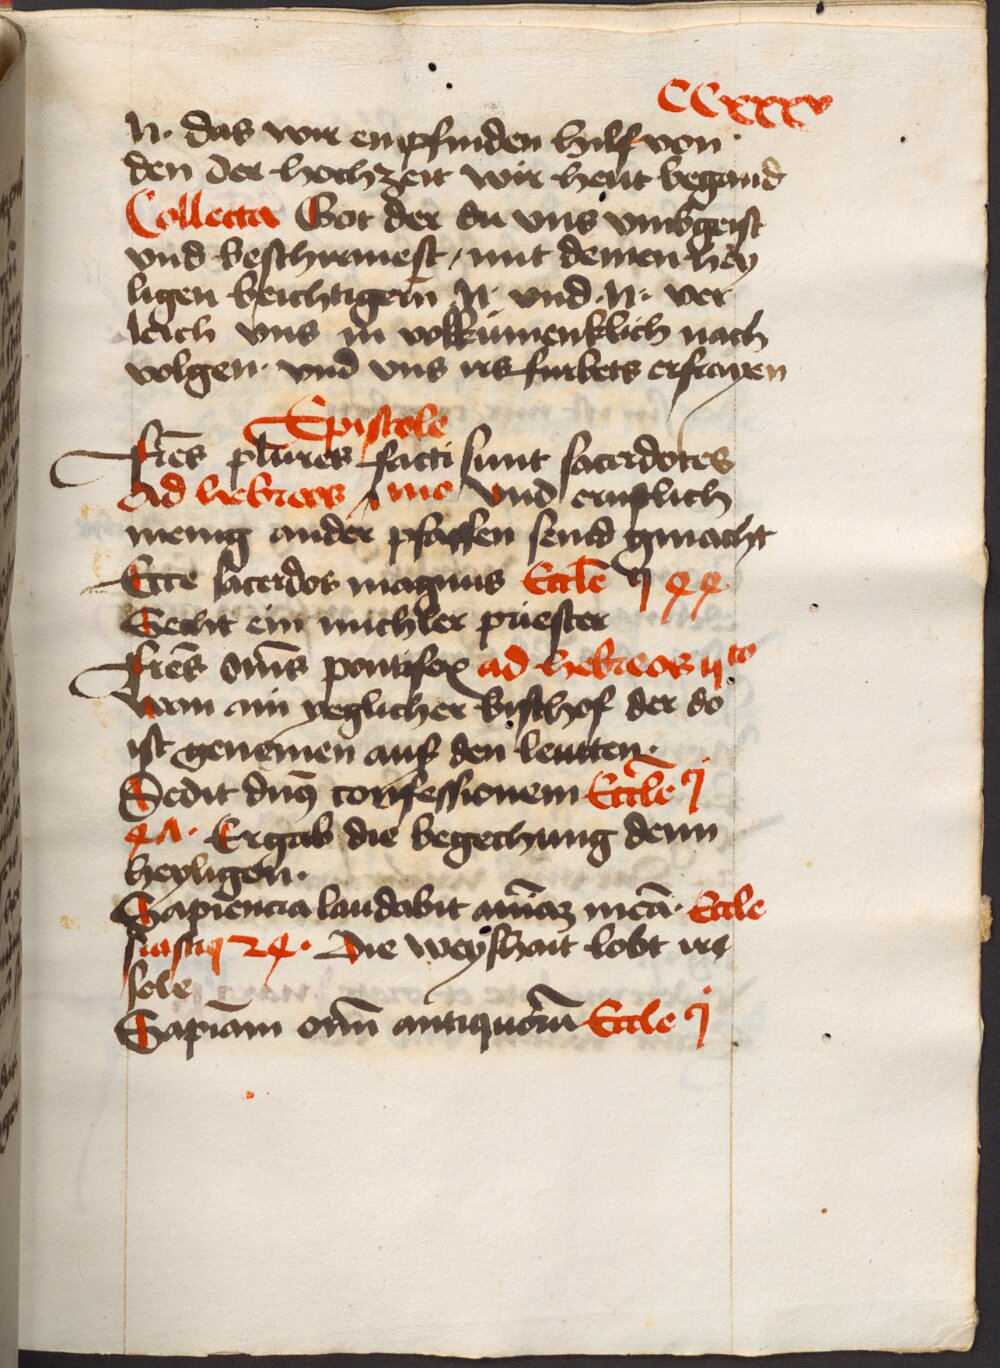 CCxxxv
N. das wir empfinden hilf von
den der hochzeit wir heut begand
Collecta Got der du uns umbgeist
und beschirmest / mit deinen hey
ligen beichtigern N. und .N. ver
leich uns in volkumenklich nach
volgen. und uns irs furbets erfrayen
Epistole
Fres plures facti sunt sacerdotes
Ad hebreos und ernstlich
menig ander pfaffen send gmacht
Ecce sacerdos magnus Eccle 44
Secht ein michler priester
Fres oms pontifex ad hebreos to
wan ain yeglicher bischof der do
ist genomen auß den leutten.
Dedit dnus confessionem Eccle
47. Er gab die begechung denn
heyligen.
Sapiencia laudabit aiam mea. Eccle
siastici 24. die weyshait lobt irs
sele
Sapiam oim antiquorum Eccle